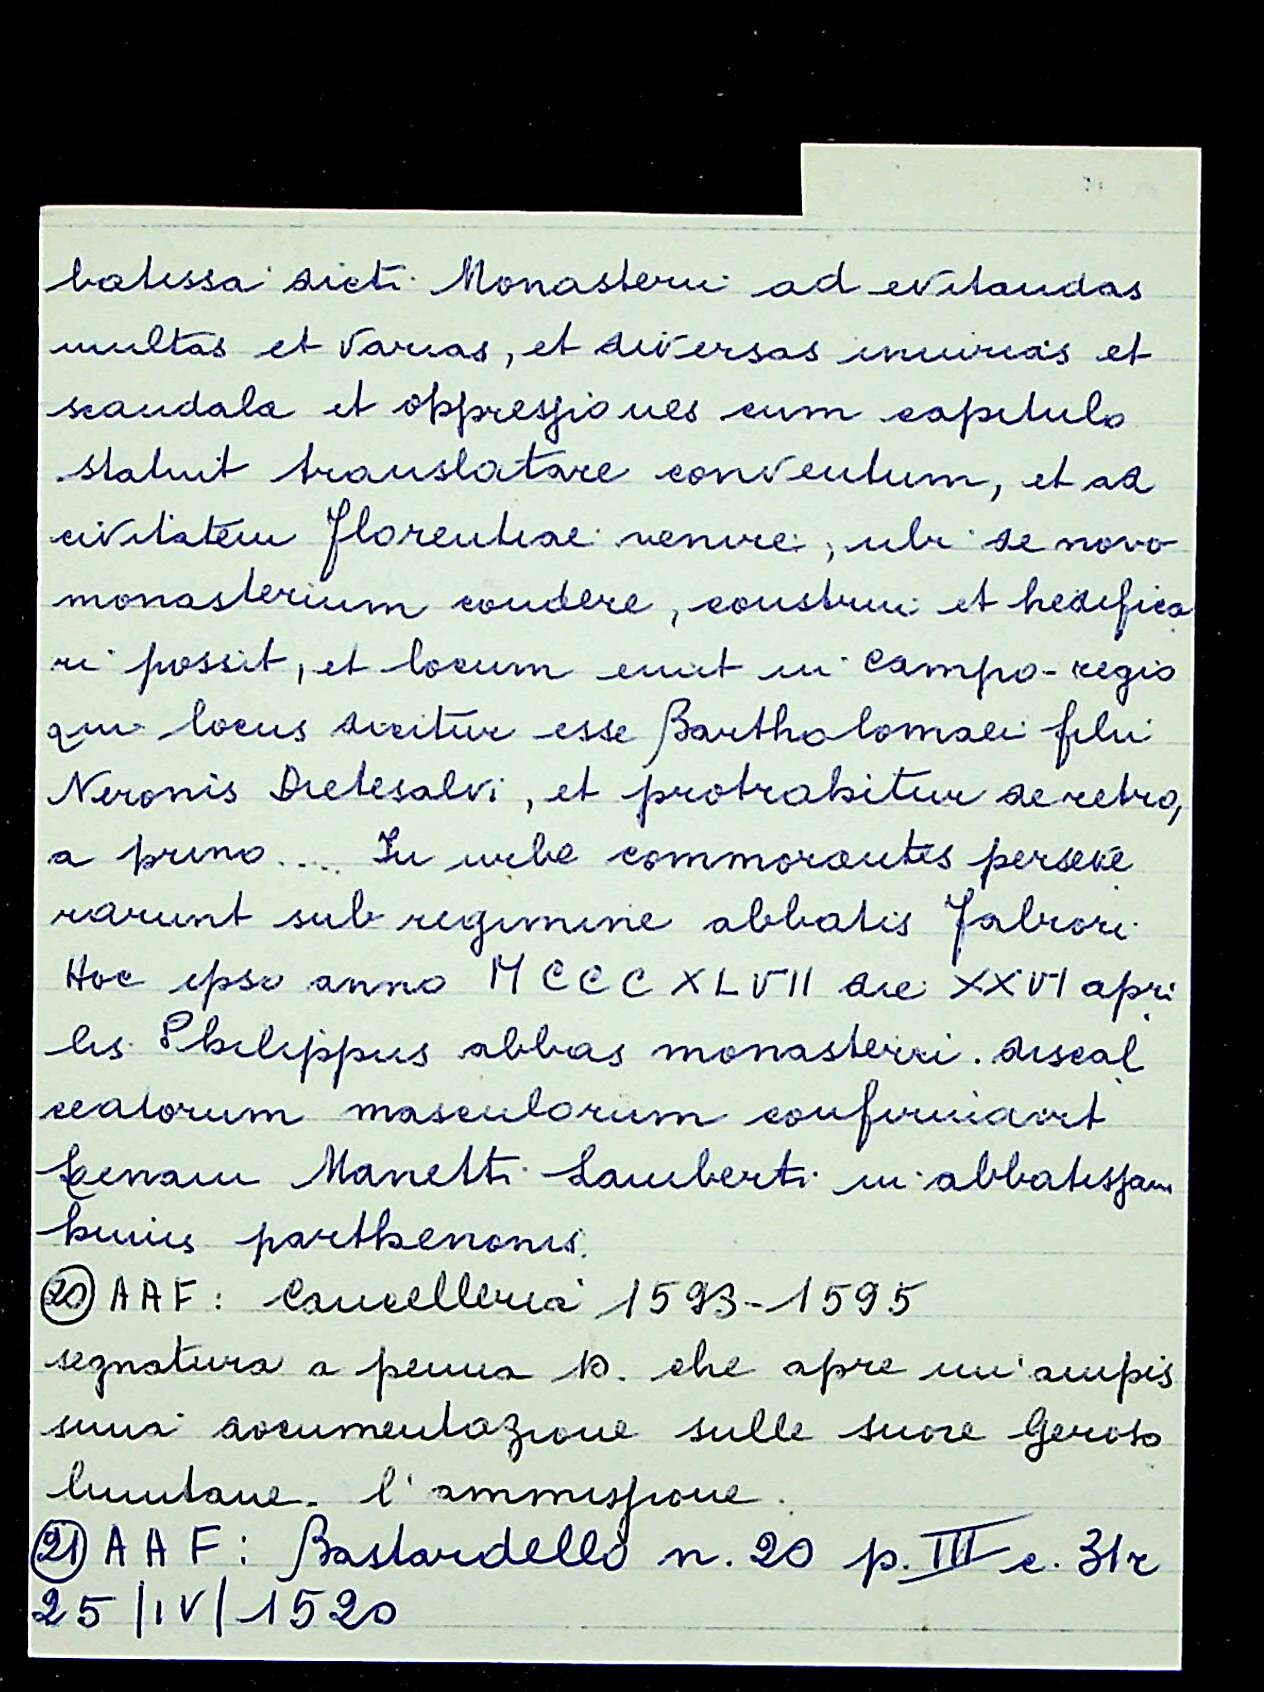 batissa dicti Monasterii ad evitandas
multas et varias, et diversas iniurias et
scandala et oppressiones cum capitulo
statuit translatare conventum, et ad
civitatem Florentiae venire, ubi de novo
monasterium condere, construi et hedifica
ri possit, et locum emit in Campo-regio
qui locus dicitur esse Bartholomaei filii
Neronis Dietesalvi, et protrahitur de retro,
a primo.... In urbe commorantes perseve
rarunt sub regimine abbatis Fabrori.
Hoc ipso anno MCCCXLVII die XXVI apri
lis Philippus abbas monasterii discal
ceatorum masculorum confirmavit
Lenam Manetti Lamberti in abbatissam
huius parthenonis.
20 AAF: Cancelleria 1593-1595
segnatura a penna 10. che apre un'ampis
sima documentazione sulle suore Geroso
limitane. l'ammissione.
21 AAF: Bastardello n. 20 p. III c. 31r
25/IV/1520